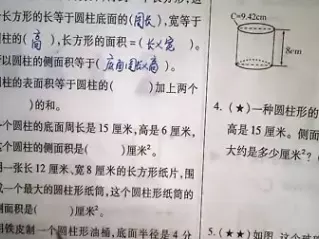 长方形的长等于圆柱底面的(周长),宽等于
柱的(高),长方形的面积=(长×宽)。
以圆柱的侧面积等于(底面周长×高)。
柱的表面积等于圆柱的(  )加上两个
(  )的和。
个圆柱的底面周长是15厘米,高是6厘米,
这个圆柱的侧面积是(  )厘米²。
用一张长12厘米、宽8厘米的长方形纸片,围
成一个最大的圆柱形纸筒,这个圆柱形纸筒的
侧面积是(  )厘米²。
用铁皮制一个圆柱形油桶,底面半径是4分
C=9.42cm
8cm
4.(★)一种圆柱形的
高是15厘米。侧面
大约是多少厘米²?
5.(★★)如图,这个